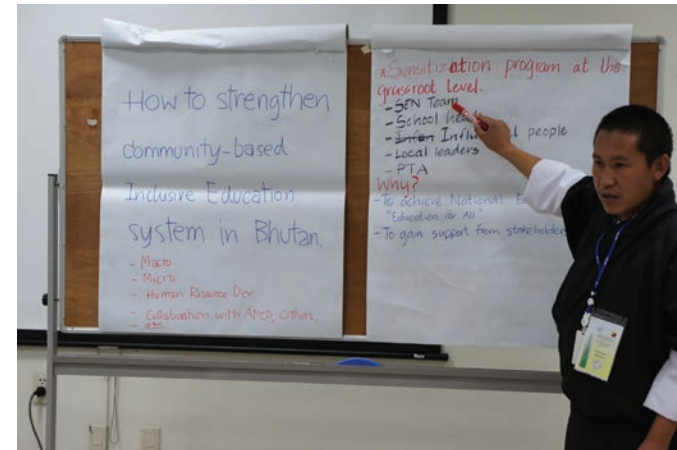 How to strengthen
community-based
Inclusive Education
system in Bhutan.
- Macro
- Micro
- Human Resource Dev
- Collaboration with APCD, Others.
- etc.
*Sensitization program at the
grassroot level.
- SEN Team
- School
- Infen people
- Local leaders
- PTA
Why?
- To achieve National
"Education for All"
- To gain support from stakeholders